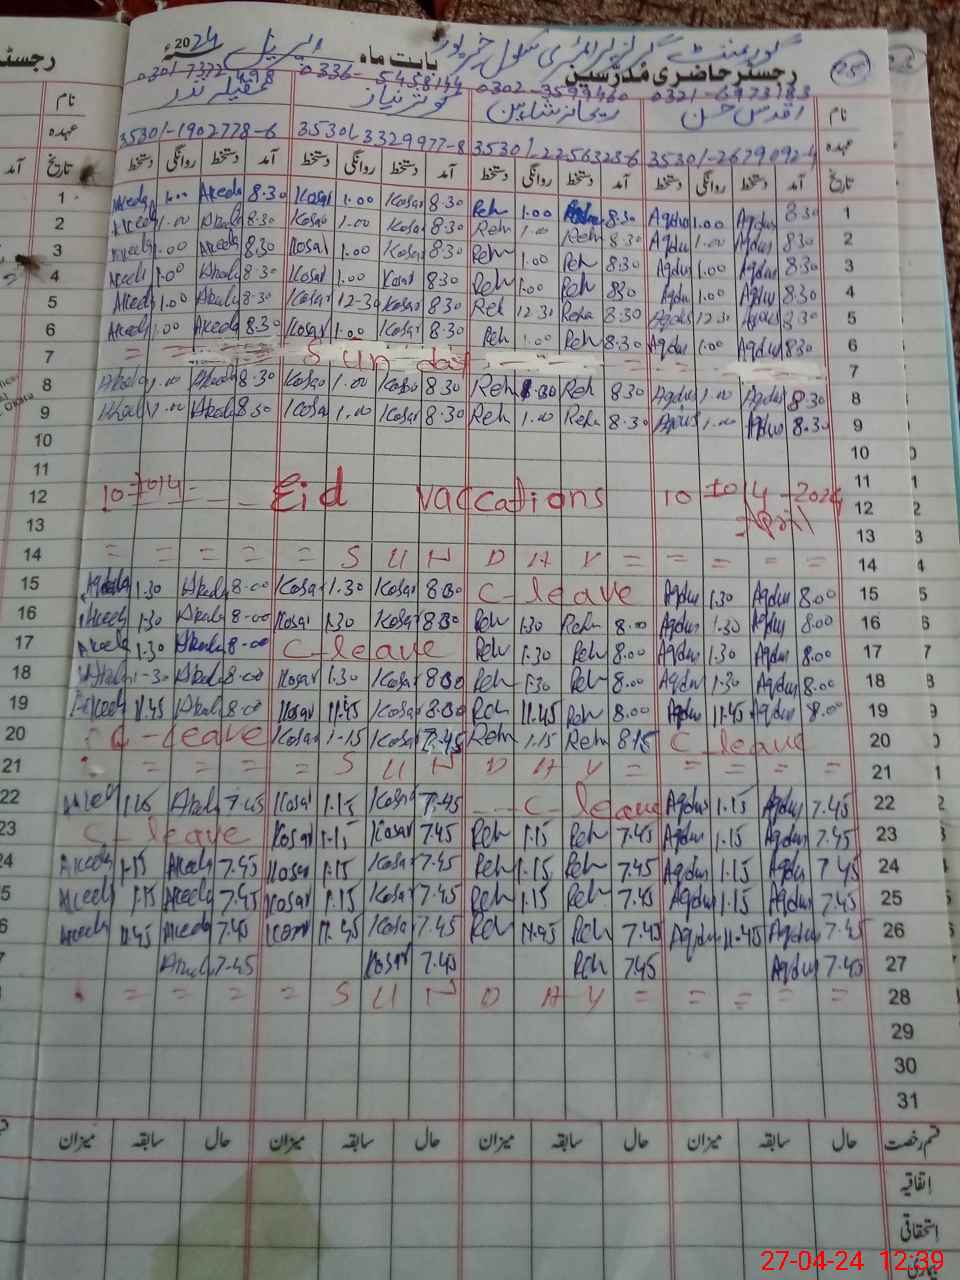 گورنمنٹ گرلز پرائمری سکول
رجسٹر حاضری مُدرّسین بابت ماہ اپریل 2024ء
0321-6973183 0302-3599460 0336-5458144 0301-7372498
نام
عہدہ 35301-2679092-4 35301-2256328-6 35301-3329977-8 35301-1902778-6
تاریخ آمد دستخط روانگی دستخط آمد دستخط روانگی دستخط آمد دستخط روانگی دستخط آمد دستخط روانگی دستخط
1 Akeela 1.00 Akeela 8.30 Kosar 1.00 Kosar 8.30 Reh 1.00 8.30 Aqdus 1.00 Aqdus 8.30 1
2 Akeela 1.00 Akeela 8.30 Kosar 1.00 Kosar 8.30 Reh 1.00 Reh 8.30 Aqdus 1.00 Aqdus 8.30 2
3 Akeela 1.00 Akeela 8.30 Kosar 1.00 Kosar 8.30 Reh 1.00 Reh 8.30 Aqdus 1.00 Aqdus 8.30 3
4 Akeela 1.00 Akeela 8.30 Kosar 1.00 Kosar 8.30 Reh 1.00 Reh 8.30 Aqdus 1.00 Aqdus 8.30 4
5 Akeela 1.00 Akeela 8.30 Kosar 12-30 Kosar 8.30 Reh 12.30 Reha 8.30 Aqdus 12.30 Aqdus 8.30 5
6 Akeela 1.00 Akeela 8.30 Kosar 1.00 Kosar 8.30 Reh 1.00 Reh 8.30 Aqdus 1.00 Aqdus 8.30 6
7 = = Sunday = = 7
8 Akeela 1.00 Akeela 8.30 Kosar 1.00 Kosar 8.30 Reh 8.30 Reh 8.30 Aqdus 1.00 Aqdus 8.30 8
9 Akeela 1.00 Akeela 8.30 Kosar 1.00 Kosar 8.30 Reh 1.00 Reha 8.30 Aqdus 1.00 Aqdus 8.30 9
10 10
11 11
12 10 to 14 = - - Eid vaccations 10 to 14 - 2024 12
13 April 13
14 = = = = = S U N D A Y = = = = = 14
15 Akeela 1.30 Akeela 8.00 Kosar 1.30 Kosar 8.00 C-leave Aqdus 1.30 Aqdus 8.00 15
16 Akeela 1.30 Akeela 8.00 Kosar 1.30 Kosar 8.00 Reh 1.30 Reha 8.00 Aqdus 1.30 Aqdus 8.00 16
17 Akeela 1.30 Akeela 8.00 C-leave Reh 1.30 Reh 8.00 Aqdus 1.30 Aqdus 8.00 17
18 Akeela 1-30 Akeela 8.00 Kosar 1.30 Kosar 8.00 Reh 1.30 Reh 8.00 Aqdus 1.30 Aqdus 8.00 18
19 Akeela 11.45 Akeela 8.00 Kosar 11.45 Kosar 8.00 Reh 11.45 Reh 8.00 Aqdus 11.45 Aqdus 8.00 19
20 C-leave Kosar 1-15 Kosar 7.45 Reh 1.15 Reh 8.15 C-leave 20
21 = = = = S U N D A Y = = = = = 21
22 Akeela 1.15 Akeela 7.45 Kosar 1.15 Kosar 7.45 - - C-leave Aqdus 1.15 Aqdus 7.45 22
23 C-leave Kosar 1.15 Kosar 7.45 Reh 1.15 Reh 7.45 Aqdus 1.15 Aqdus 7.45 23
24 Akeela 1.15 Akeela 7.45 Kosar 1.15 Kosar 7.45 Reh 1.15 Reh 7.45 Aqdus 1.15 Aqdus 7.45 24
5 Akeela 1.15 Akeela 7.45 Kosar 1.15 Kosar 7.45 Reh 1.15 Reh 7.45 Aqdus 1.15 Aqdus 7.45 25
6 Akeela 11.45 Akeela 7.45 Kosar 11.45 Kosar 7.45 Reh 11.45 Reh 7.45 Aqdus 11.45 Aqdus 7.45 26
Akeela 7.45 Kosar 7.45 Reh 7.45 Aqdus 7.45 27
= = = = S U N D A Y = = = = = 28
29
30
31
قسم رخصت حال سابقہ میزان حال سابقہ میزان حال سابقہ میزان حال سابقہ میزان
اتفاقیہ
استحقاقی
27-04-24 12:39